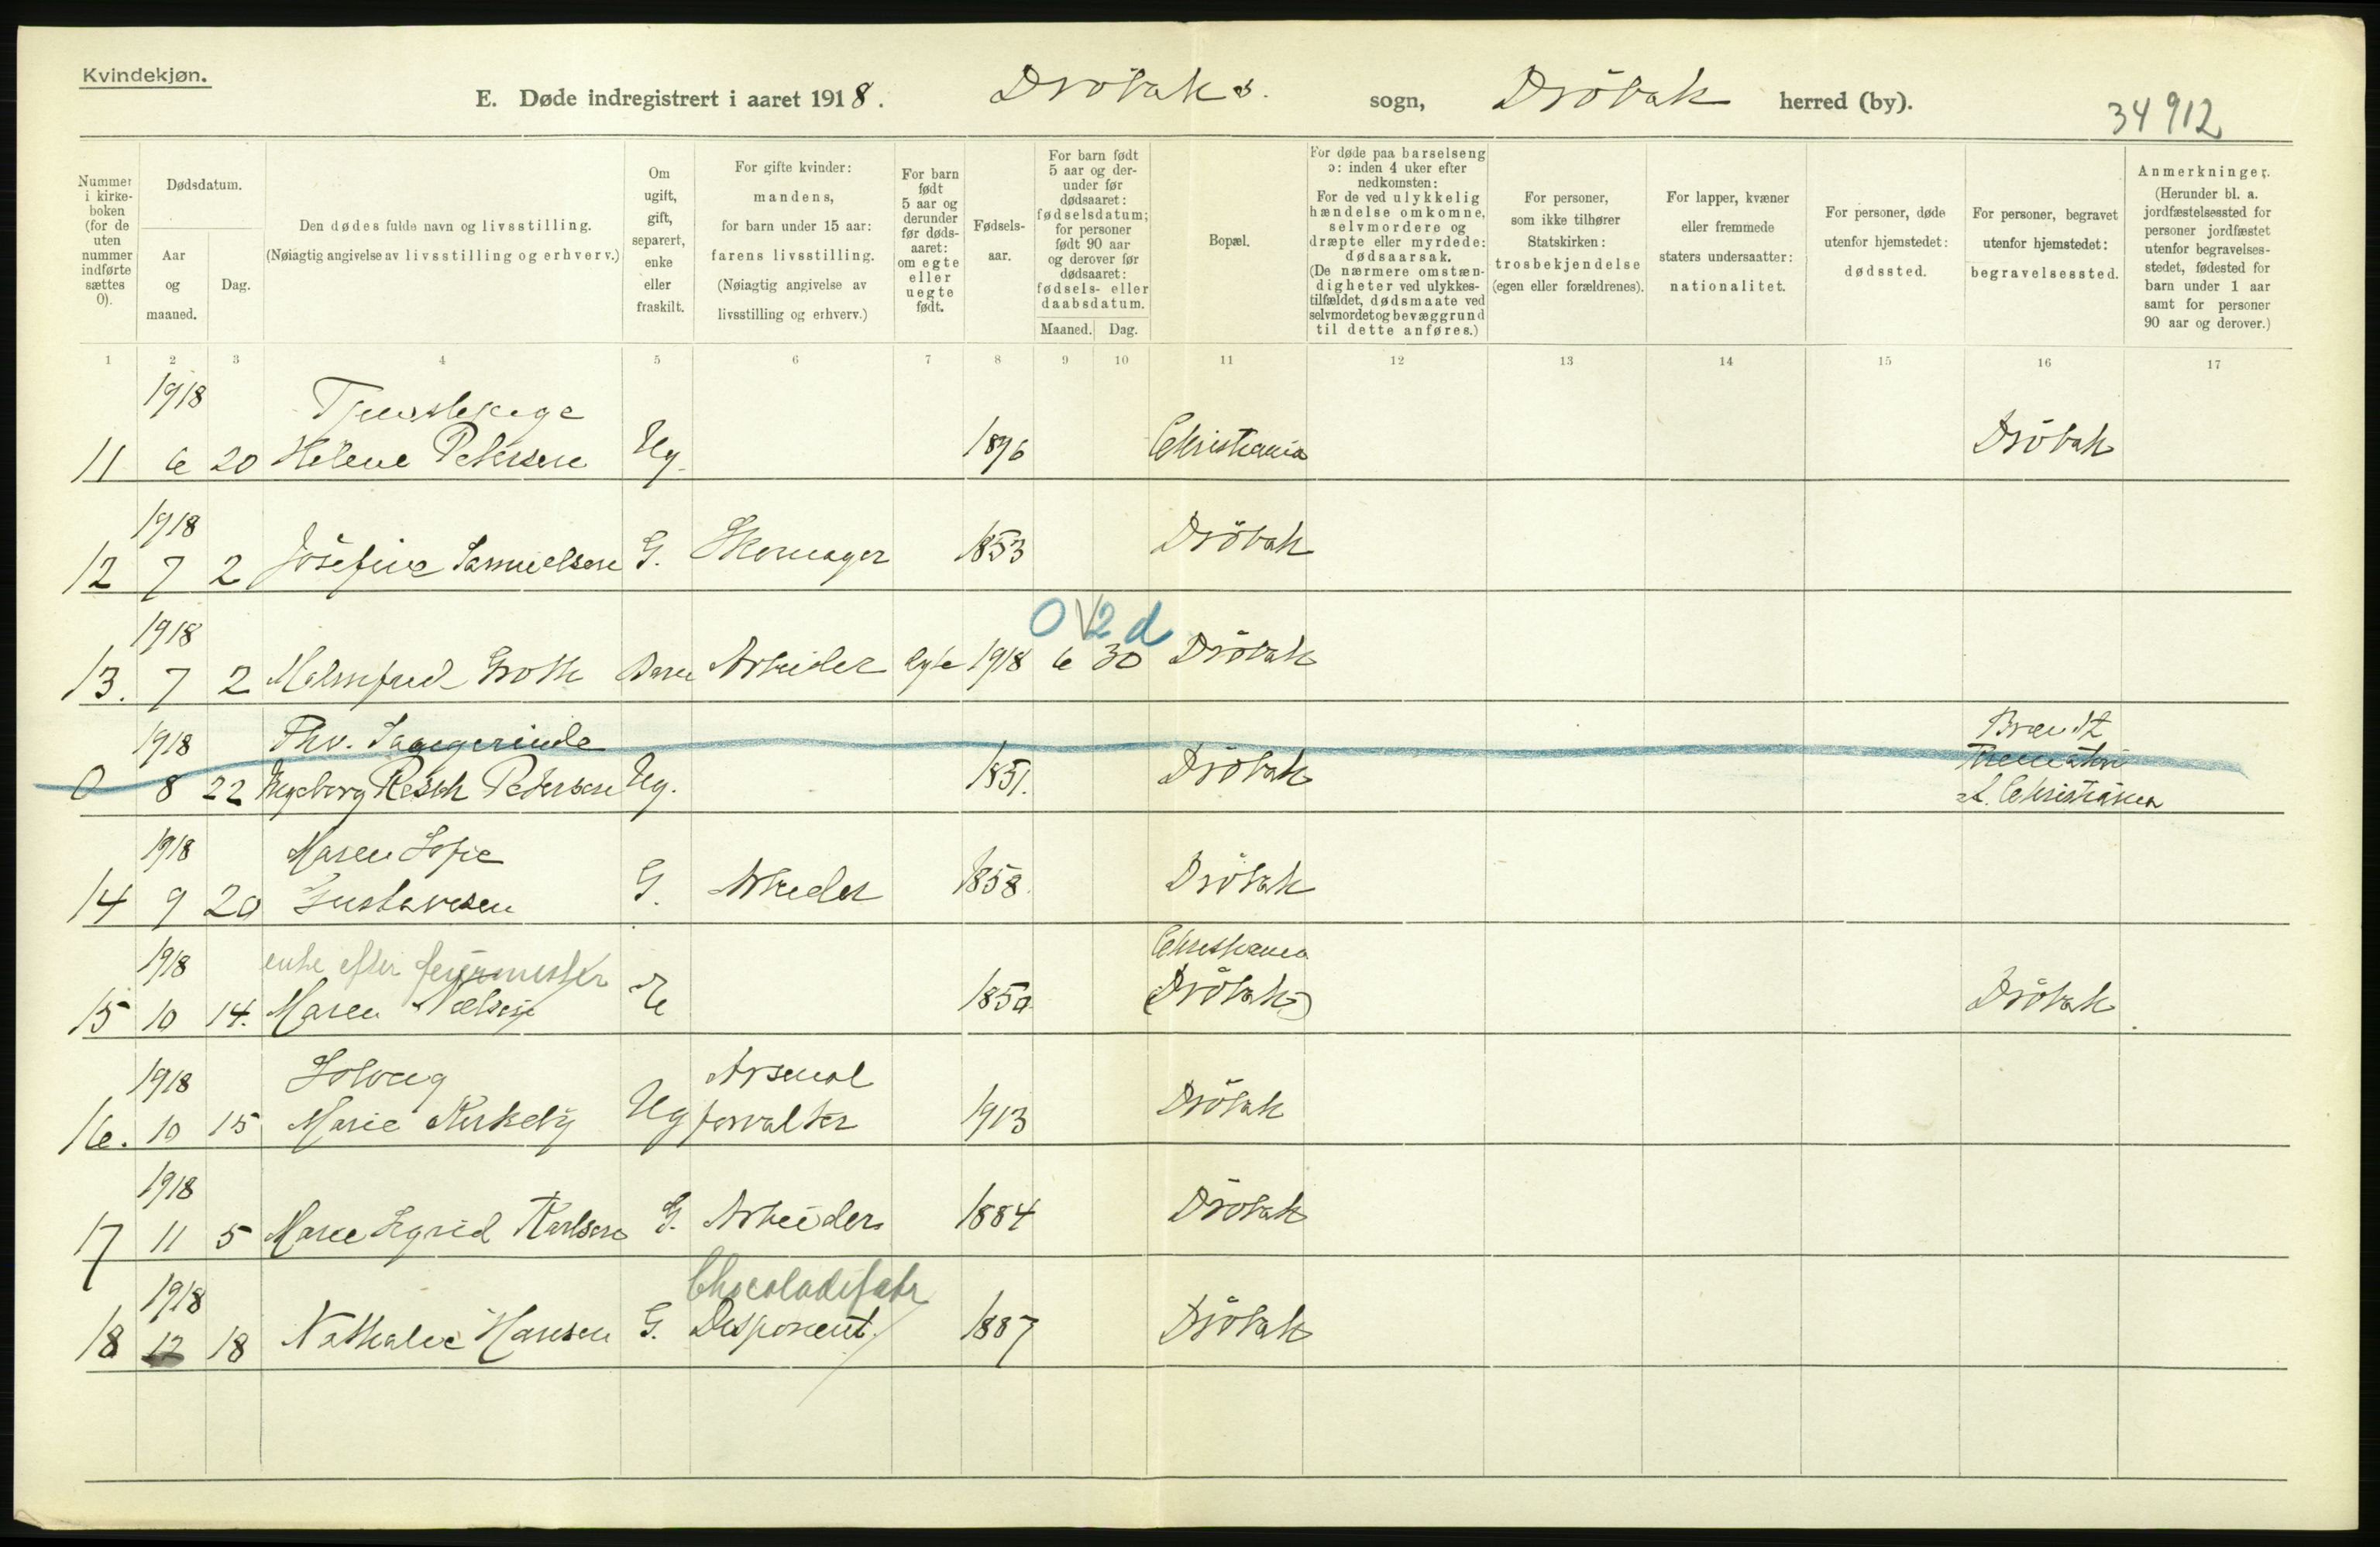 Kvindekjøn.
E. Døde indregistrert i aaret 1918. Dröbaks. sogn, Dröbak herred (by).
34 912
Nummer i kirkeboken (for de uten nummer indførte sættes 0).
Dødsdatum.
Aar og maaned.
Dag.
Den dødes fulde navn og livsstilling.
(Nøiagtig angivelse av livsstilling og erhverv.)
Om ugift, gift, separert, enke eller fraskilt.
For gifte kvinder: mandens, for barn under 15 aar: farens livsstilling. (Nøiagtig angivelse av livsstilling og erhverv.)
For barn født 5 aar og derunder før dødsaaret: om egte eller uegte født.
Fødselsaar.
For barn født 5 aar og derunder før dødsaaret: fødselsdatum; for personer født 90 aar og derover før dødsaaret: fødsels- eller daabsdatum.
Maaned. Dag.
Bopæl.
For døde paa barselseng ɔ: inden 4 uker efter nedkomsten: For de ved ulykkelig hændelse omkomne, selvmordere og dræpte eller myrdede: dødsaarsak. (De nærmere omstændigheter ved ulykkestilfældet, dødsmaate ved selvmordet og bevæggrund til dette anføres.)
For personer, som ikke tilhører Statskirken: trosbekjendelse (egen eller forældrenes).
For lapper, kvæner eller fremmede staters undersaatter: nationalitet.
For personer, døde utenfor hjemstedet: dødssted.
For personer, begravet utenfor hjemstedet: begravelsessted.
Anmerkninger. (Herunder bl. a. jordfæstelsessted for personer jordfæstet utenfor begravelsesstedet, fødested for barn under 1 aar samt for personer 90 aar og derover.)
1 2 3 4 5 6 7 8 9 10 11 12 13 14 15 16 17
1918
11 6 20 Helene Petersen Ug. 1896 Christiania Dröbak
1918
12 7 2 Josefine Samuelsen G. Skomager 1853 Dröbak
1918 0 2 d
13. 7 2 Groth Barn Arbeider Egte 1918 6 30 Dröbak
1918 Phv. Brændt
0 8 22 Ingeborg Resch Petersen Ug. 1851. Dröbak Krematori
Christiania
1918 Maren Sofie
14 9 20 Gustavesen G. Arbeider 1858. Dröbak
1918 enke efter Christiania
15 10 14. Maren Nielsen E 1850 (Dröbak) Dröbak
1918 Solveig Arsenal
16. 10 15 Marie Kirkeby Ug forvalter 1913 Dröbak
1918
17 11 5 Maren Sigrid Karlsen G. Arbeider 1884 Dröbak
1918 Chocoladefabr
18 12 18 Nathalie Hansen G. Disponent. 1887 Dröbak